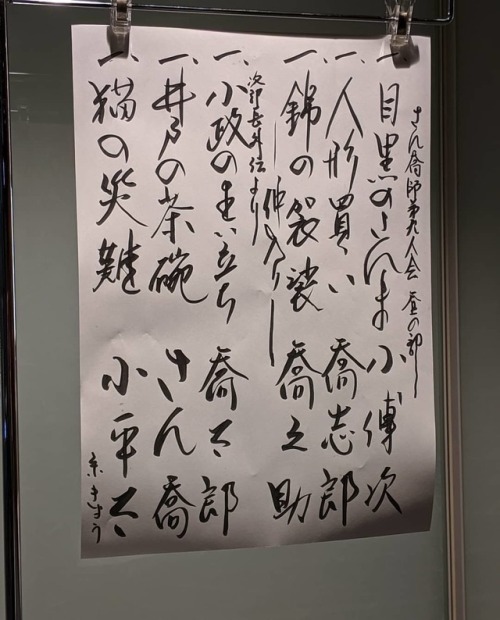 さん喬師弟九人会 昼の部
一、目黒のさんま 小傳次
一、人形買い 喬志郎
一、錦の袈裟 喬之助
―仲入り―
次郎長外伝より
一、小政の生い立ち 喬太郎
一、井戸の茶碗 さん喬
一、猫の災難 小平太